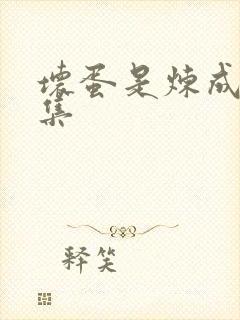 壞蛋是炼成
集
释笑